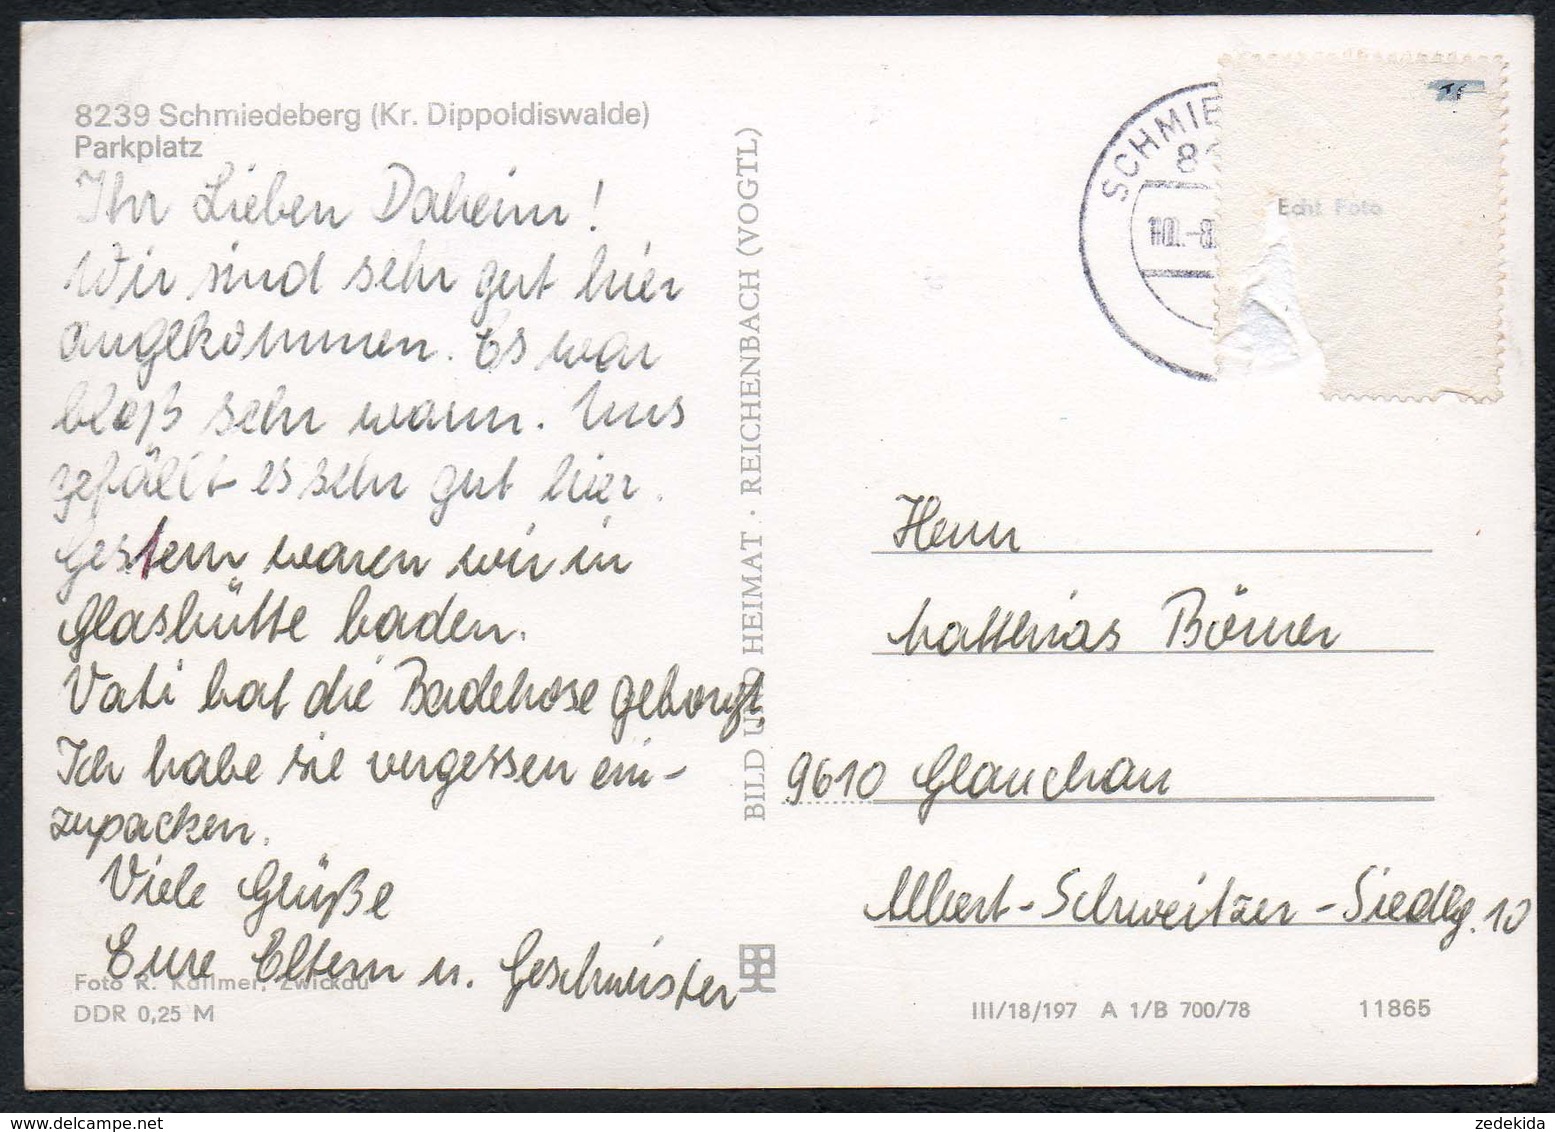 8239 Schmiedeberg (Kr. Dippoldiswalde)
Parkplatz
Ihr Lieben Daheim!
Wir sind sehr gut hier
angekommen. Es war
bloß sehr warm. Uns
gefällt es sehr gut hier.
Gestern waren wir in
Glashütte baden.
Vati hat die Badehose geborgt
Ich habe sie vergessen ein-
zupacken.
Viele Grüße
Eure Eltern u. Geschwister
Foto R. Kallmer, Zwickau
DDR 0,25 M
BILD UND HEIMAT · REICHENBACH (VOGTL)
SCHMIE
8
10.-8
Echt Foto
Herrn
Matthias Börner
9610 Glauchau
Albert-Schweitzer-Siedlg. 10
III/18/197 A 1/B 700/78 11865
zedekida